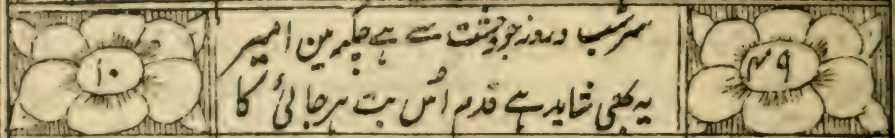 ۴۹
سر شب و روز جو وحشت سے ہے چکر میں امیر
یہ بھی شاید ہے قدم اُس بت ہرجائی کا
۱۰